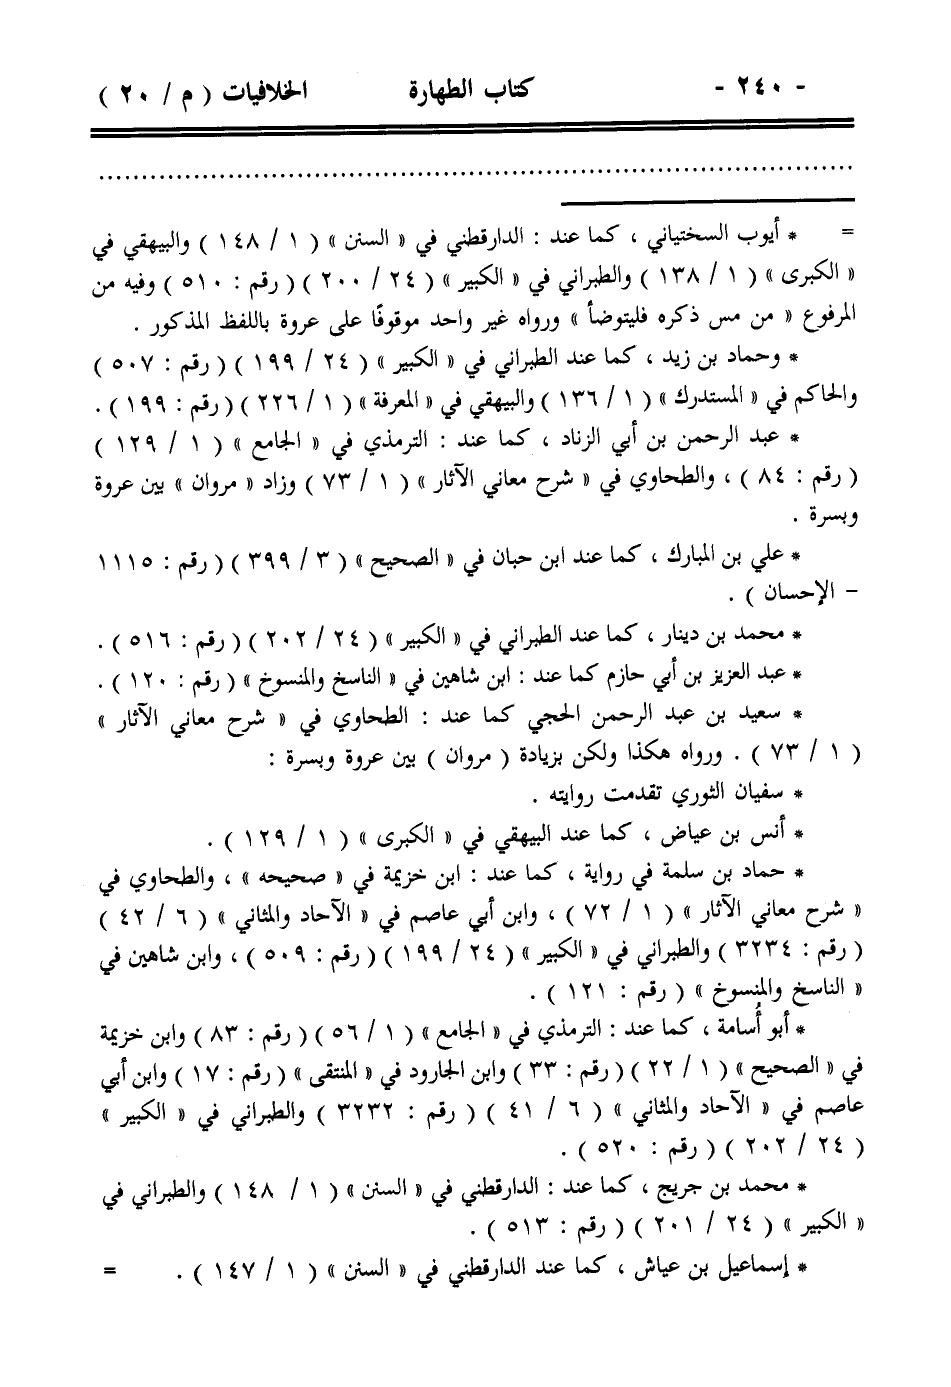 - ٢٤٠ - كتاب الطهارة الخلافيات ( م / ٢٠ )
................................................................................
= * أيوب السختياني ، كما عند : الدارقطني في « السنن » ( ١ / ١٤٨ ) والبيهقي في
« الكبرى » ( ١ / ١٣٨ ) والطبراني في « الكبير » ( ٢٤ / ٢٠٠ ) ( رقم : ٥١٠ ) وفيه من
المرفوع « من مس ذكره فليتوضأ » ورواه غير واحد موقوفًا على عروة باللفظ المذكور .
* وحماد بن زيد ، كما عند الطبراني في « الكبير » ( ٢٤ / ١٩٩ ) ( رقم : ٥٠٧ )
والحاكم في « المستدرك » ( ١ / ١٣٦ ) والبيهقي في « المعرفة » ( ١ / ٢٢٦ ) ( رقم : ١٩٩ ) .
* عبد الرحمن بن أبي الزناد ، كما عند : الترمذي في « الجامع » ( ١ / ١٢٩ )
( رقم : ٨٤ ) ، والطحاوي في « شرح معاني الآثار » ( ١ / ٧٣ ) وزاد « مروان » بين عروة
وبسرة .
* علي بن المبارك ، كما عند ابن حبان في « الصحيح » ( ٣ / ٣٩٩ ) ( رقم : ١١١٥
- الإحسان ) .
* محمد بن دينار ، كما عند الطبراني في « الكبير » ( ٢٤ / ٢٠٢ ) ( رقم : ٥١٦ ) .
* عبد العزيز بن أبي حازم كما عند : ابن شاهين في « الناسخ والمنسوخ » ( رقم : ١٢٠ ) .
* سعيد بن عبد الرحمن الجمحي كما عند : الطحاوي في « شرح معاني الآثار »
( ١ / ٧٣ ) . ورواه هكذا ولكن بزيادة ( مروان ) بين عروة وبسرة :
* سفيان الثوري تقدمت روايته .
* أنس بن عياض ، كما عند البيهقي في « الكبرى » ( ١ / ١٢٩ ) .
* حماد بن سلمة في رواية ، كما عند : ابن خزيمة في « صحيحه » ، والطحاوي في
« شرح معاني الآثار » ( ١ / ٧٢ ) ، وابن أبي عاصم في « الآحاد والمثاني » ( ٦ / ٤٢ )
( رقم : ٣٢٣٤ ) والطبراني في « الكبير » ( ٢٤ / ١٩٩ ) ( رقم : ٥٠٩ ) ، وابن شاهين في
« الناسخ والمنسوخ » ( رقم : ١٢١ ) .
* أبو أُسامة ، كما عند : الترمذي في « الجامع » ( ١ / ٥٦ ) ( رقم : ٨٣ ) وابن خزيمة
في « الصحيح » ( ١ / ٢٢ ) ( رقم : ٣٣ ) وابن الجارود في « المنتقى » ( رقم : ١٧ ) وابن أبي
عاصم في « الآحاد والمثاني » ( ٦ / ٤١ ) ( رقم : ٣٢٣٢ ) والطبراني في « الكبير »
( ٢٤ / ٢٠٢ ) ( رقم : ٥٢٠ ) .
* محمد بن جريج ، كما عند : الدارقطني في « السنن » ( ١ / ١٤٨ ) والطبراني في
« الكبير » ( ٢٤ / ٢٠١ ) ( رقم : ٥١٣ ) .
* إسماعيل بن عياش ، كما عند الدارقطني في « السنن » ( ١ / ١٤٧ ) . =